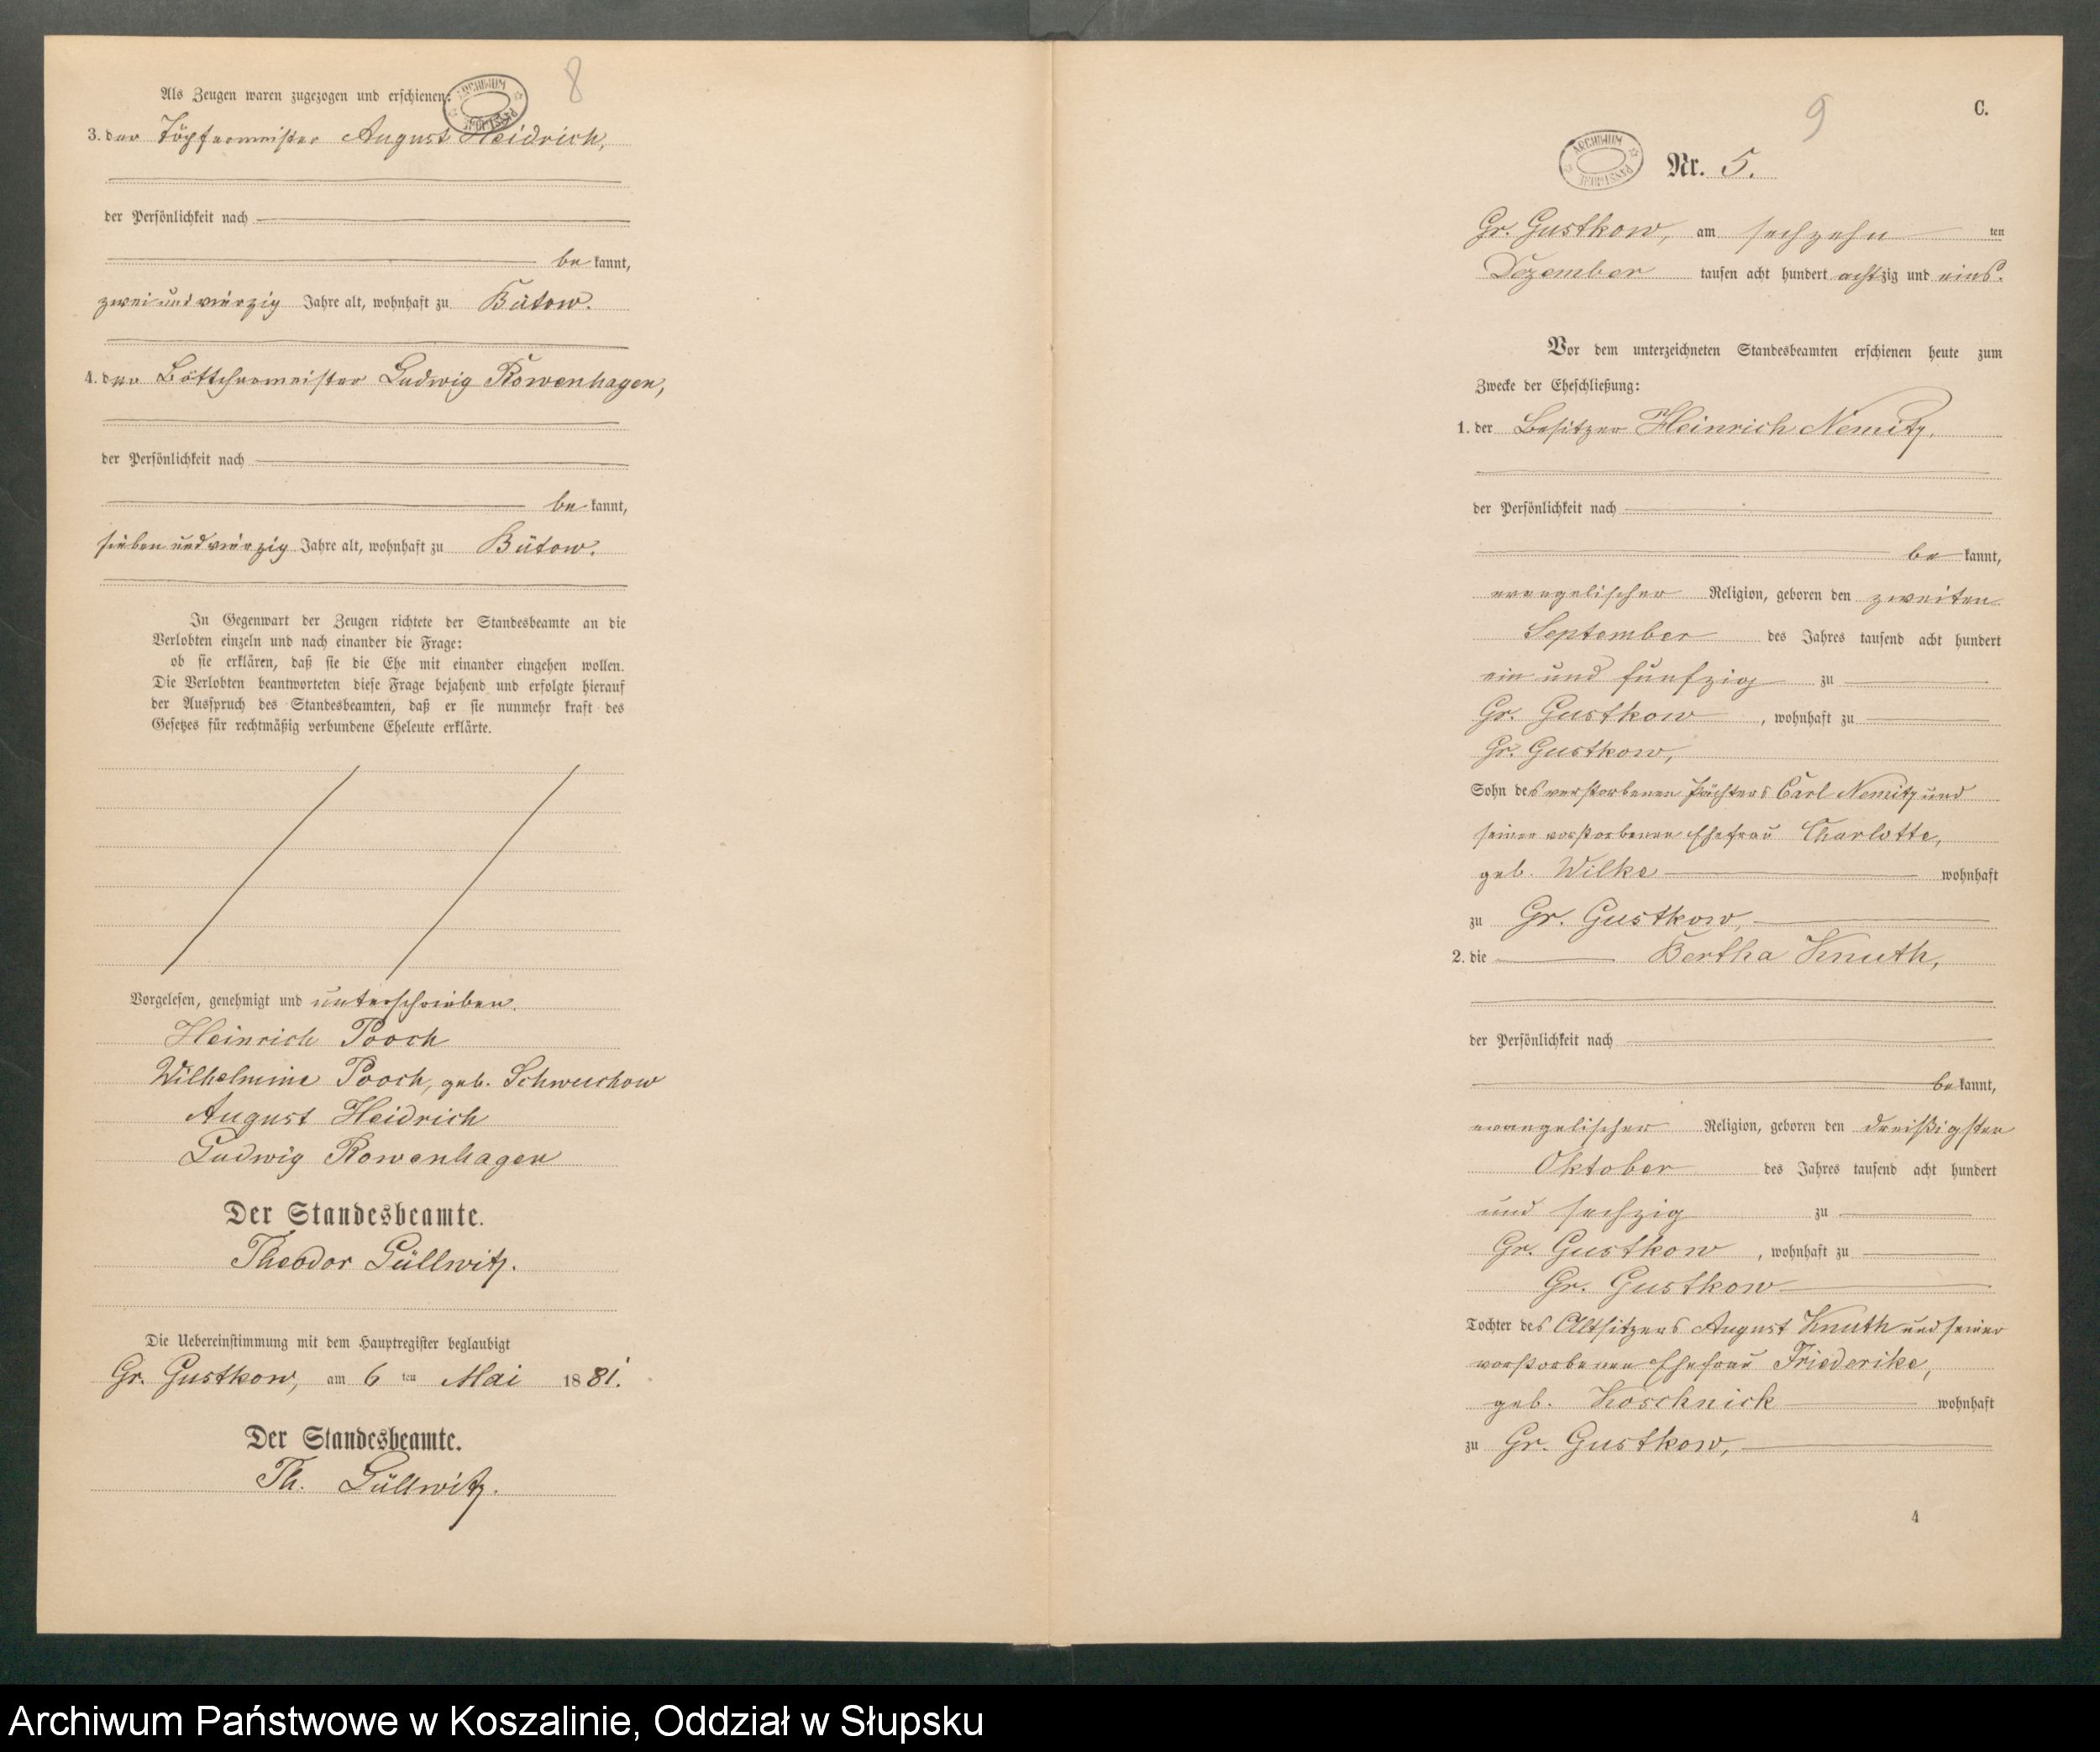 8
Als Zeugen waren zugezogen und erschienen:
3. der Töpfermeister August Heidrich,
der Persönlichkeit nach
be kannt,
zwei und vierzig Jahre alt, wohnhaft zu Bütow.
4. der Böttchermeister Ludwig Rowenhagen,
der Persönlichkeit nach
be kannt,
sieben und vierzig Jahre alt, wohnhaft zu Bütow.
In Gegenwart der Zeugen richtete der Standesbeamte an die
Verlobten einzeln und nach einander die Frage:
ob sie erklären, daß sie die Ehe mit einander eingehen wollen.
Die Verlobten beantworteten diese Frage bejahend und erfolgte hierauf
der Ausspruch des Standesbeamten, daß er sie nunmehr kraft des
Gesetzes für rechtmäßig verbundene Eheleute erklärte.
Vorgelesen, genehmigt und unterschrieben.
Heinrich Pooch
Wilhelmine Pooch, geb. Schwuchow
August Heidrich
Ludwig Rowenhagen
Der Standesbeamte.
Theodor Güllwitz.
Die Uebereinstimmung mit dem Hauptregister beglaubigt
Gr. Gustkow, am 6 ten Mai 1881.
Der Standesbeamte.
Th. Güllwitz.
9
C.
ARCHIWUM
Nr. 5.
Gr. Gustkow, am sechzehn ten
Dezember tausen acht hundert achtzig und eins.
Vor dem unterzeichneten Standesbeamten erschienen heute zum
Zwecke der Eheschließung:
1. der Besitzer Heinrich Nemitz,
der Persönlichkeit nach
be kannt,
evangelischer Religion, geboren den zweiten
September des Jahres tausend acht hundert
ein und fünfzig zu
Gr. Gustkow, wohnhaft zu
Gr. Gustkow,
Sohn des verstorbenen Pächters Carl Nemitz und
seiner verstorbenen Ehefrau Charlotte,
geb. Wilke wohnhaft
zu Gr. Gustkow,
2. die Bertha Knuth,
der Persönlichkeit nach
be kannt,
evangelischer Religion, geboren den dreißigsten
Oktober des Jahres tausend acht hundert
und sechzig zu
Gr. Gustkow, wohnhaft zu
Gr. Gustkow
Tochter des Altsitzers August Knuth und seiner
verstorbenen Ehefrau Friederike,
geb. Koschnick wohnhaft
zu Gr. Gustkow,
4
Archiwum Państwowe w Koszalinie, Oddział w Słupsku